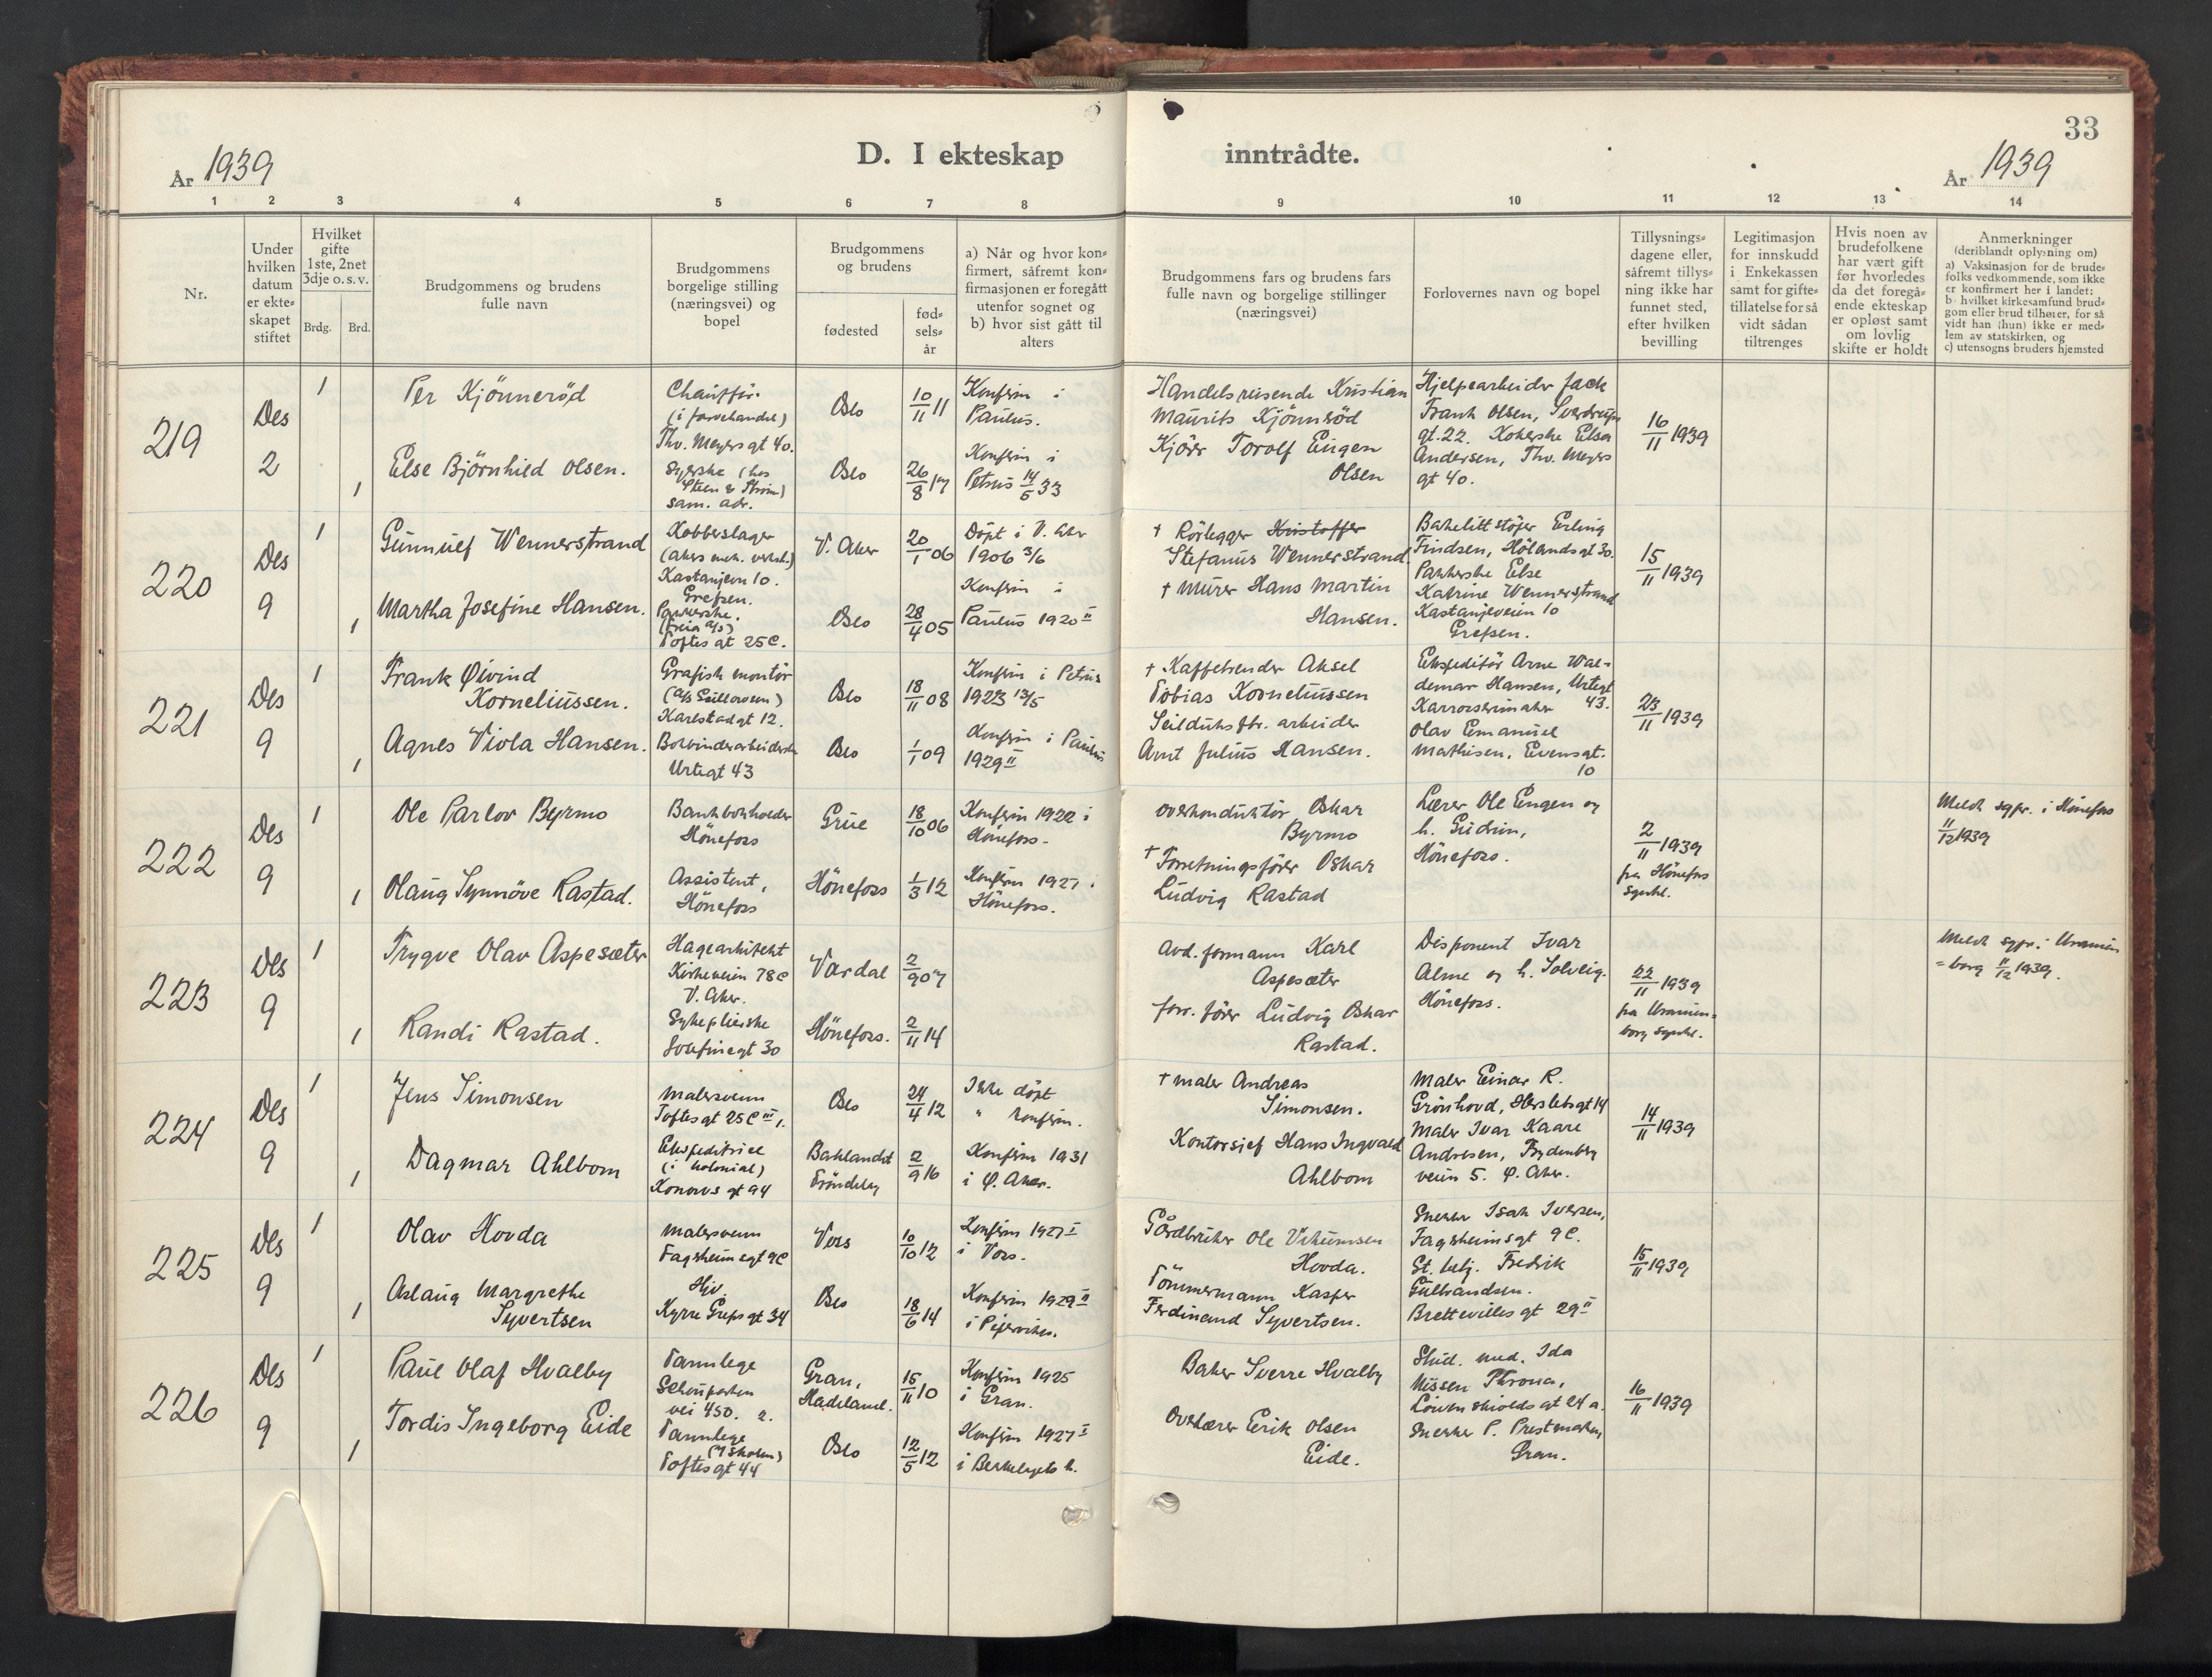 33
År 1939
D. I ekteskap inntrådte.
År 1939
1 2 3 4 5 6 7 8 9 10 11 12 13 14
Nr.
Under hvilken datum er ekteskapet stiftet
Hvilket gifte 1ste, 2net 3dje o. s. v.
Brdg. Brd.
Brudgommens og brudens fulle navn
Brudgommens borgelige stilling (næringsvei) og bopel
Brudgommens og brudens
fødested
fødselsår
a) Når og hvor konfirmert, såfremt konfirmasjonen er foregått utenfor sognet og
b) hvor sist gått til alters
Brudgommens fars og brudens fars fulle navn og borgelige stillinger (næringsvei)
Forlovernes navn og bopel
Tillysningsdagene eller, såfremt tillysning ikke har funnet sted, efter hvilken bevilling
Legitimasjon for innskudd i Enkekassen samt for giftetillatelse for så vidt sådan tiltrenges
Hvis noen av brudefolkene har vært gift før hvorledes da det foregående ekteskap er opløst samt om lovlig skifte er holdt
Anmerkninger
(deriblandt oplysning om)
a) Vaksinasjon for de brudefolks vedkommende, som ikke er konfirmert her i landet:
b) hvilket kirkesamfund brudgom eller brud tilhører, for så vidt han (hun) ikke er medlem av statskirken, og
c) utensogns bruders hjemsted
219
Des
2
1
Per Kjönneröd
Chaufför
Thv. Meyers gt 40.
Oslo
10/11 11
Konfirm i
Paulus.
Handelsreisende Kristian
Maurits Kjönneröd
Hjelpearbeider Jack
Frank Olsen, Sverdrups
gt. 22. Kokerske Elsa
Andersen, Thv. Meyers
gt 40.
16/11 1939
1
Else Björnhild Olsen.
Syerske (hos
Steen & Ström)
sam. adr.
Oslo
26/8 17
Konfirm i
Petrus 14/5 33
Kjörer Torolf Eugen
Olsen
220
Des
9
1
Gunnulf Wennerstrand
Kobberslager
(Akers mek. verksh.)
Kastanjevn 10.
Grefsen.
V. Aker
20/1 06
Döpt i V. Aker
1906 3/6
† Rörlegger Kristoffer
Stefanus Wennerstrand
Bakelittstöper Erling
Findsen, Hölandsgt 30.
Pakkerske Else
Katrine Wennerstrand
Kastanjeveien 10
Grefsen.
15/11 1939
1
Martha Josefine Hansen.
Pakkerske.
(Freia A/S)
Toftes gt 25 C.
Oslo
28/4 05
Konfirm i
Paulus 1920 II
† Murer Hans Martin
Hansen.
221
Des
9
1
Frank Øivind
Korneliussen.
Grafisk montör
Karlstadgt 12.
Oslo
18/11 08
Konfirm i Petrus
1923 13/5
† Kaffebrender Aksel
Tobias Korneliussen
Ekspeditör Arne Wal-
demar Hansen, Urtegt
43.
Karrosserimaker
Olav Emanuel
Mathisen, Evensgt.
10
23/11 1939
1
Agnes Viola Hansen.
Bokbinderarbeiderske
Urtegt 43
Oslo
1/1 09
Konfirm i Paulus
1929 II
Seilduksfbr. arbeider
Arnt Julius Hansen.
222
Des
9
1
Ole Parlov Byrmo
Bankbokholder
Hönefoss
Grue
18/10 06
Konfirm 1922 i
Hönefoss.
Overkonduktör Oskar
Byrmo
Lærer Ole Engen og
h. Gudrun,
Hönefoss.
2/11 1939
fra Hönefoss
sgnkl.
Meldt sgpr. i Hönefoss
11/12 1939
1
Olaug Synnöve Rastad.
Assistent,
Hönefoss
Hönefoss
1/3 12
Konfirm 1927 i
Hönefoss.
† Forretningsförer Oskar
Ludvig Rastad
223
Des
9
1
Trygve Olav Aspesæter
Hagearkitekt
Kirkeveien 78 C
V. Aker.
Vardal
2/9 07
Avd. formann Karl
Aspesæter
Disponent Ivar
Alme og h. Solveig.
Hönefoss.
22/11 1939
fra Uranien-
borg sgnkl.
Meldt sgpr. i Uranien
=borg 11/12 1939.
1
Randi Rastad.
Sykepleierske
Josefinegt 30
Hönefoss.
2/11 14
forr. förer Ludvig Oskar
Rastad.
224
Des
9
1
Jens Simonsen
Malersvenn
Toftes gt 25 C III.
Oslo
24/4 12
Ikke döpt
" konfirm.
† Maler Andreas
Simonsen.
Maler Einar R.
Grönhovd, Herslebsgt 14
Maler Ivar Kaare
Andresen, Frydenberg
veien 5. Ø. Aker.
14/11 1939
1
Dagmar Ahlbom
Ekspeditrise
(i kolonial)
Konows gt 94
Baklandet
Tröndelag
2/9 16
Konfirm 1931
i Ø. Aker.
Kontorsjef Hans Ingvald
Ahlbom
225
Des
9
1
Olav Hovda
Malersvenn
Fagerheimsgt 9 C
Voss
10/10 12
Konfirm 1927 I
i Voss.
Gårdbruker Ole
Hovda.
Snekker Isak Iversen,
Fagerheimsgt 9 C.
St. betj. Fredrik
Gulbrandsen.
Brettevilles gt 29 II
15/11 1939
1
Aslaug Margrethe
Syvertsen
Hjv.
Kyrre Greps gt 34
Oslo
18/6 14
Konfirm 1929 II
i Pipervikn.
Tömmermann Kasper
Ferdinand Syvertsen.
226
Des
9
1
Paul Olaf Hvalby
Tannlege
vei 450.
Gran,
Hadeland.
15/11 10
Konfirm 1925
i Gran.
Baker Sverre Hvalby
Stud. med. Ida
Nissen
Lövenskiolds gt 24 a.
Snekker P. Prestmarken
Gran.
16/11 1939
1
Tordis Ingeborg Eide
Tannlege
Toftes gt 44
Oslo
12/5 12
Konfirm 1927 I
i Berkelyets k.
Overlærer Eerik Olsen
Eide.